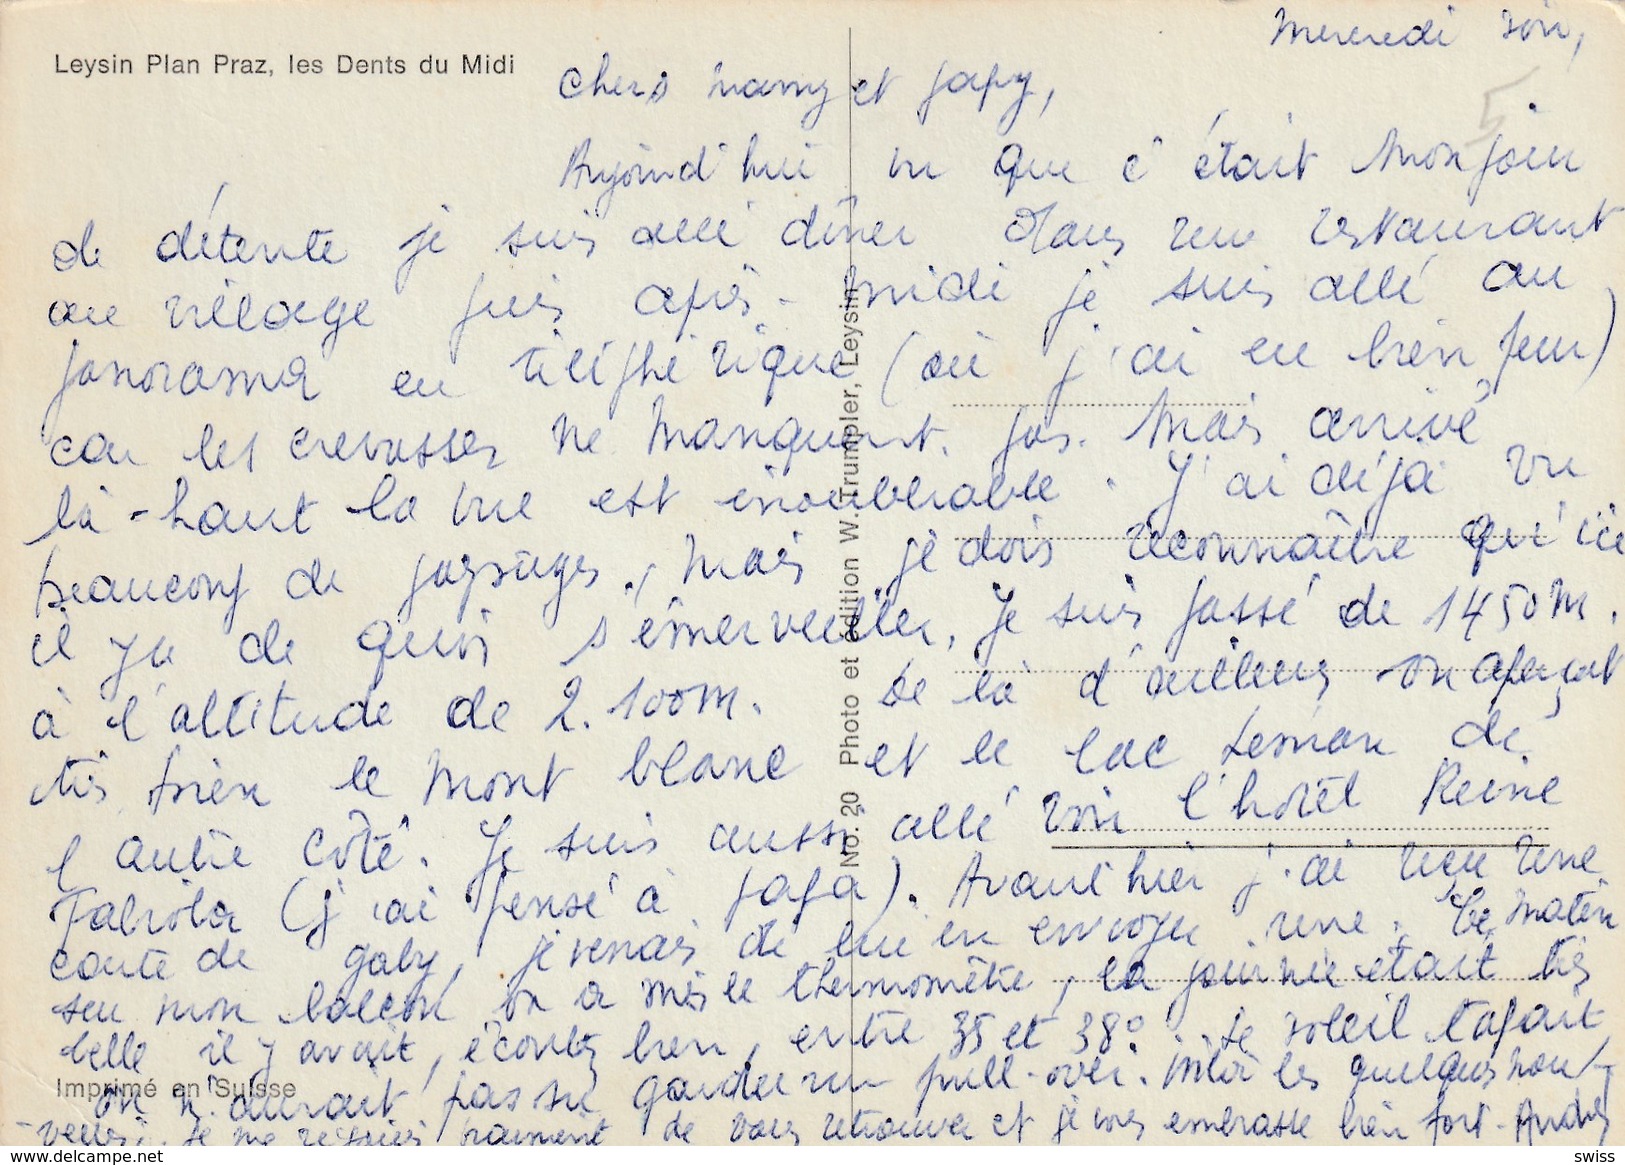 Mercredi soir,
Leysin Plan Praz, les Dents du Midi
Chers mamy et papy,
Aujourd'hui vu que c'était mon jour
de détente je suis allé dîner dans un restaurant
au village puis après-midi je suis allé au
panorama en téléphérique (où j'ai eu bien peur)
car les crevasses ne manquent pas. Mais arrivé
là-haut la vue est inoubliable. J'ai déjà vu
beaucoup de paysages, mais je dois reconnaître qu'ici
il y a de quoi s'émerveiller. Je suis passé de 1450m.
à l'altitude de 2.100m. De là d'ailleurs on aperçoit
très bien le Mont blanc et le lac Léman de
l'autre côté. Je suis aussi allé voir l'hôtel Reine
Fabiola (j'ai pensé à papa). Avant hier j'ai reçu une
carte de gaby, je venais de lui en envoyer une. Ce matin
sur mon balcon on a mis le thermomètre, la journée était très
belle il y avait, écoutez bien, entre 35 et 38°. Le soleil tapait,
on n'aurait pas su garder un pull-over. Voilà les quelques nou-
-velles. Je me réjouis vraiment de vous retrouver et je vous embrasse bien fort. André
Imprimé en Suisse
No. 20 Photo et édition W. Trumpler, Leysin
5
www.delcampe.net
swiss